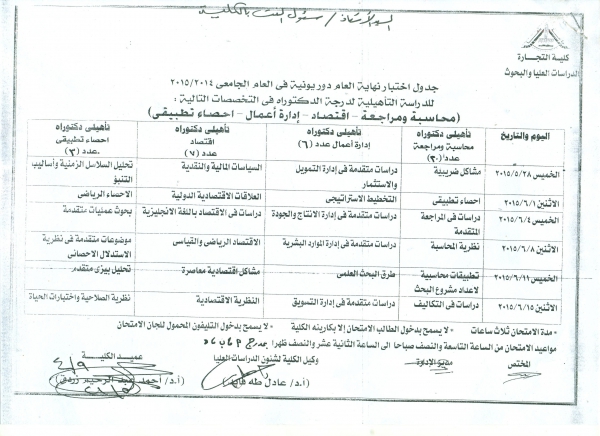 السيد الأستاذ / مسئول النت بالكلية
كلية التجارة
الدراسات العليا والبحوث
جدول اختبار نهاية العام دور يونية فى العام الجامعى ٢٠١٥/٢٠١٤
للدراسة التأهيلية لدرجة الدكتوراه فى التخصصات التالية :
(محاسبة ومراجعة - اقتصاد - إدارة أعمال - احصاء تطبيقى)
اليوم والتاريخ
تأهيلى دكتوراه محاسبة ومراجعة عدد (٢٠)
تأهيلى دكتوراه إدارة أعمال عدد (٦)
تأهيلى دكتوراه اقتصاد عدد (٧)
تأهيلى دكتوراه احصاء تطبيقى عدد (٣)
الخميس ٢٠١٥/٥/٢٨ مشاكل ضريبية دراسات متقدمة فى إدارة التمويل والاستثمار السياسات المالية والنقدية تحليل السلاسل الزمنية وأساليب التنبؤ
الاثنين ٢٠١٥/٦/١ احصاء تطبيقى التخطيط الاستراتيجى العلاقات الاقتصادية الدولية الاحصاء الرياضى
الخميس ٢٠١٥/٦/٤ دراسات فى المراجعة المتقدمة دراسات متقدمة فى إدارة الانتاج والجودة دراسات فى الاقتصاد باللغة الانجليزية بحوث عمليات متقدمة
الاثنين ٢٠١٥/٦/٨ نظرية المحاسبة دراسات متقدمة فى إدارة الموارد البشرية الاقتصاد الرياضى والقياسى موضوعات متقدمة فى نظرية الاستدلال الاحصائى
الخميس ٢٠١٥/٦/١١ تطبيقات محاسبية لاعداد مشروع البحث طرق البحث العلمى مشاكل اقتصادية معاصرة تحليل بيزى متقدم
الاثنين ٢٠١٥/٦/١٥ دراسات فى التكاليف دراسات متقدمة فى إدارة التسويق النظرية الاقتصادية نظرية الصلاحية واختبارات الحياة
* مدة الامتحان ثلاث ساعات * لا يسمح بدخول الطالب الامتحان إلا بكارنيه الكلية * لا يسمح بدخول التليفون المحمول للجان الامتحان
مواعيد الامتحان من الساعة التاسعة والنصف صباحا الى الساعة الثانية عشر والنصف ظهرا بمدرج
المختص مدير الإدارة وكيل الكلية لشئون الدراسات العليا عميد الكلية
(أ.د/ عادل طه فايد) (أ.د/ أحمد عبد الرحيم زردق)